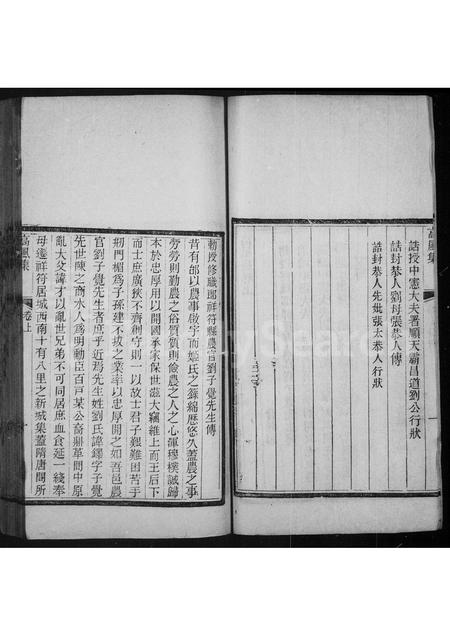 高風集
誥授中憲大夫署順天霸昌道劉公行狀
誥封恭人劉母張恭人傳
誥封恭人先妣張太恭人行狀
一
勅授修職郎祥符縣農官劉子覺先生傳
昔有邰以農事啟宇而姬氏之籙綿歷悠久蓋農之事
勞勞則勤農之俗質質則儉農之人之心渾穆樸誠歸
本於忠厚用以開國承家保世滋大竊維上而王后下
而士庶廣狹不齊創守則一以故士君子艱難困苦于
刱門楣為子孫建不拔之業率以忠厚開之如吾邑農
官劉子覺先生者庶乎近焉先生姓劉氏諱鐸字子覺
先世陳之商水人為明勳臣百戸某公裔鼎革間中原
亂大父諱才以亂世兄弟不可同居庶血食延一綫奉
母遷祥符居城西南十有八里之新城集蓋隋唐間所
高風集
卷上